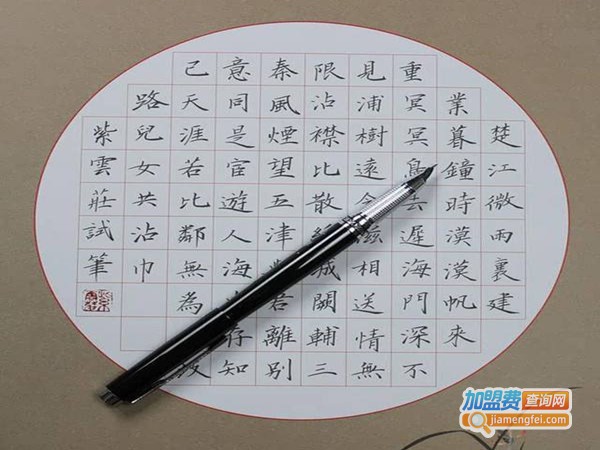 楚江微雨裏建
業暮鐘時漠漠帆來
重冥冥鳥去遲海門深不
見浦樹遠含滋相送情無
限沾襟比散絲城闕輔三
秦風煙望五津君離別
意同是宦遊人海存知
己天涯若比鄰無為
路兒女共沾巾
紫雲莊試筆
加盟费查询网
jiamengfei.com